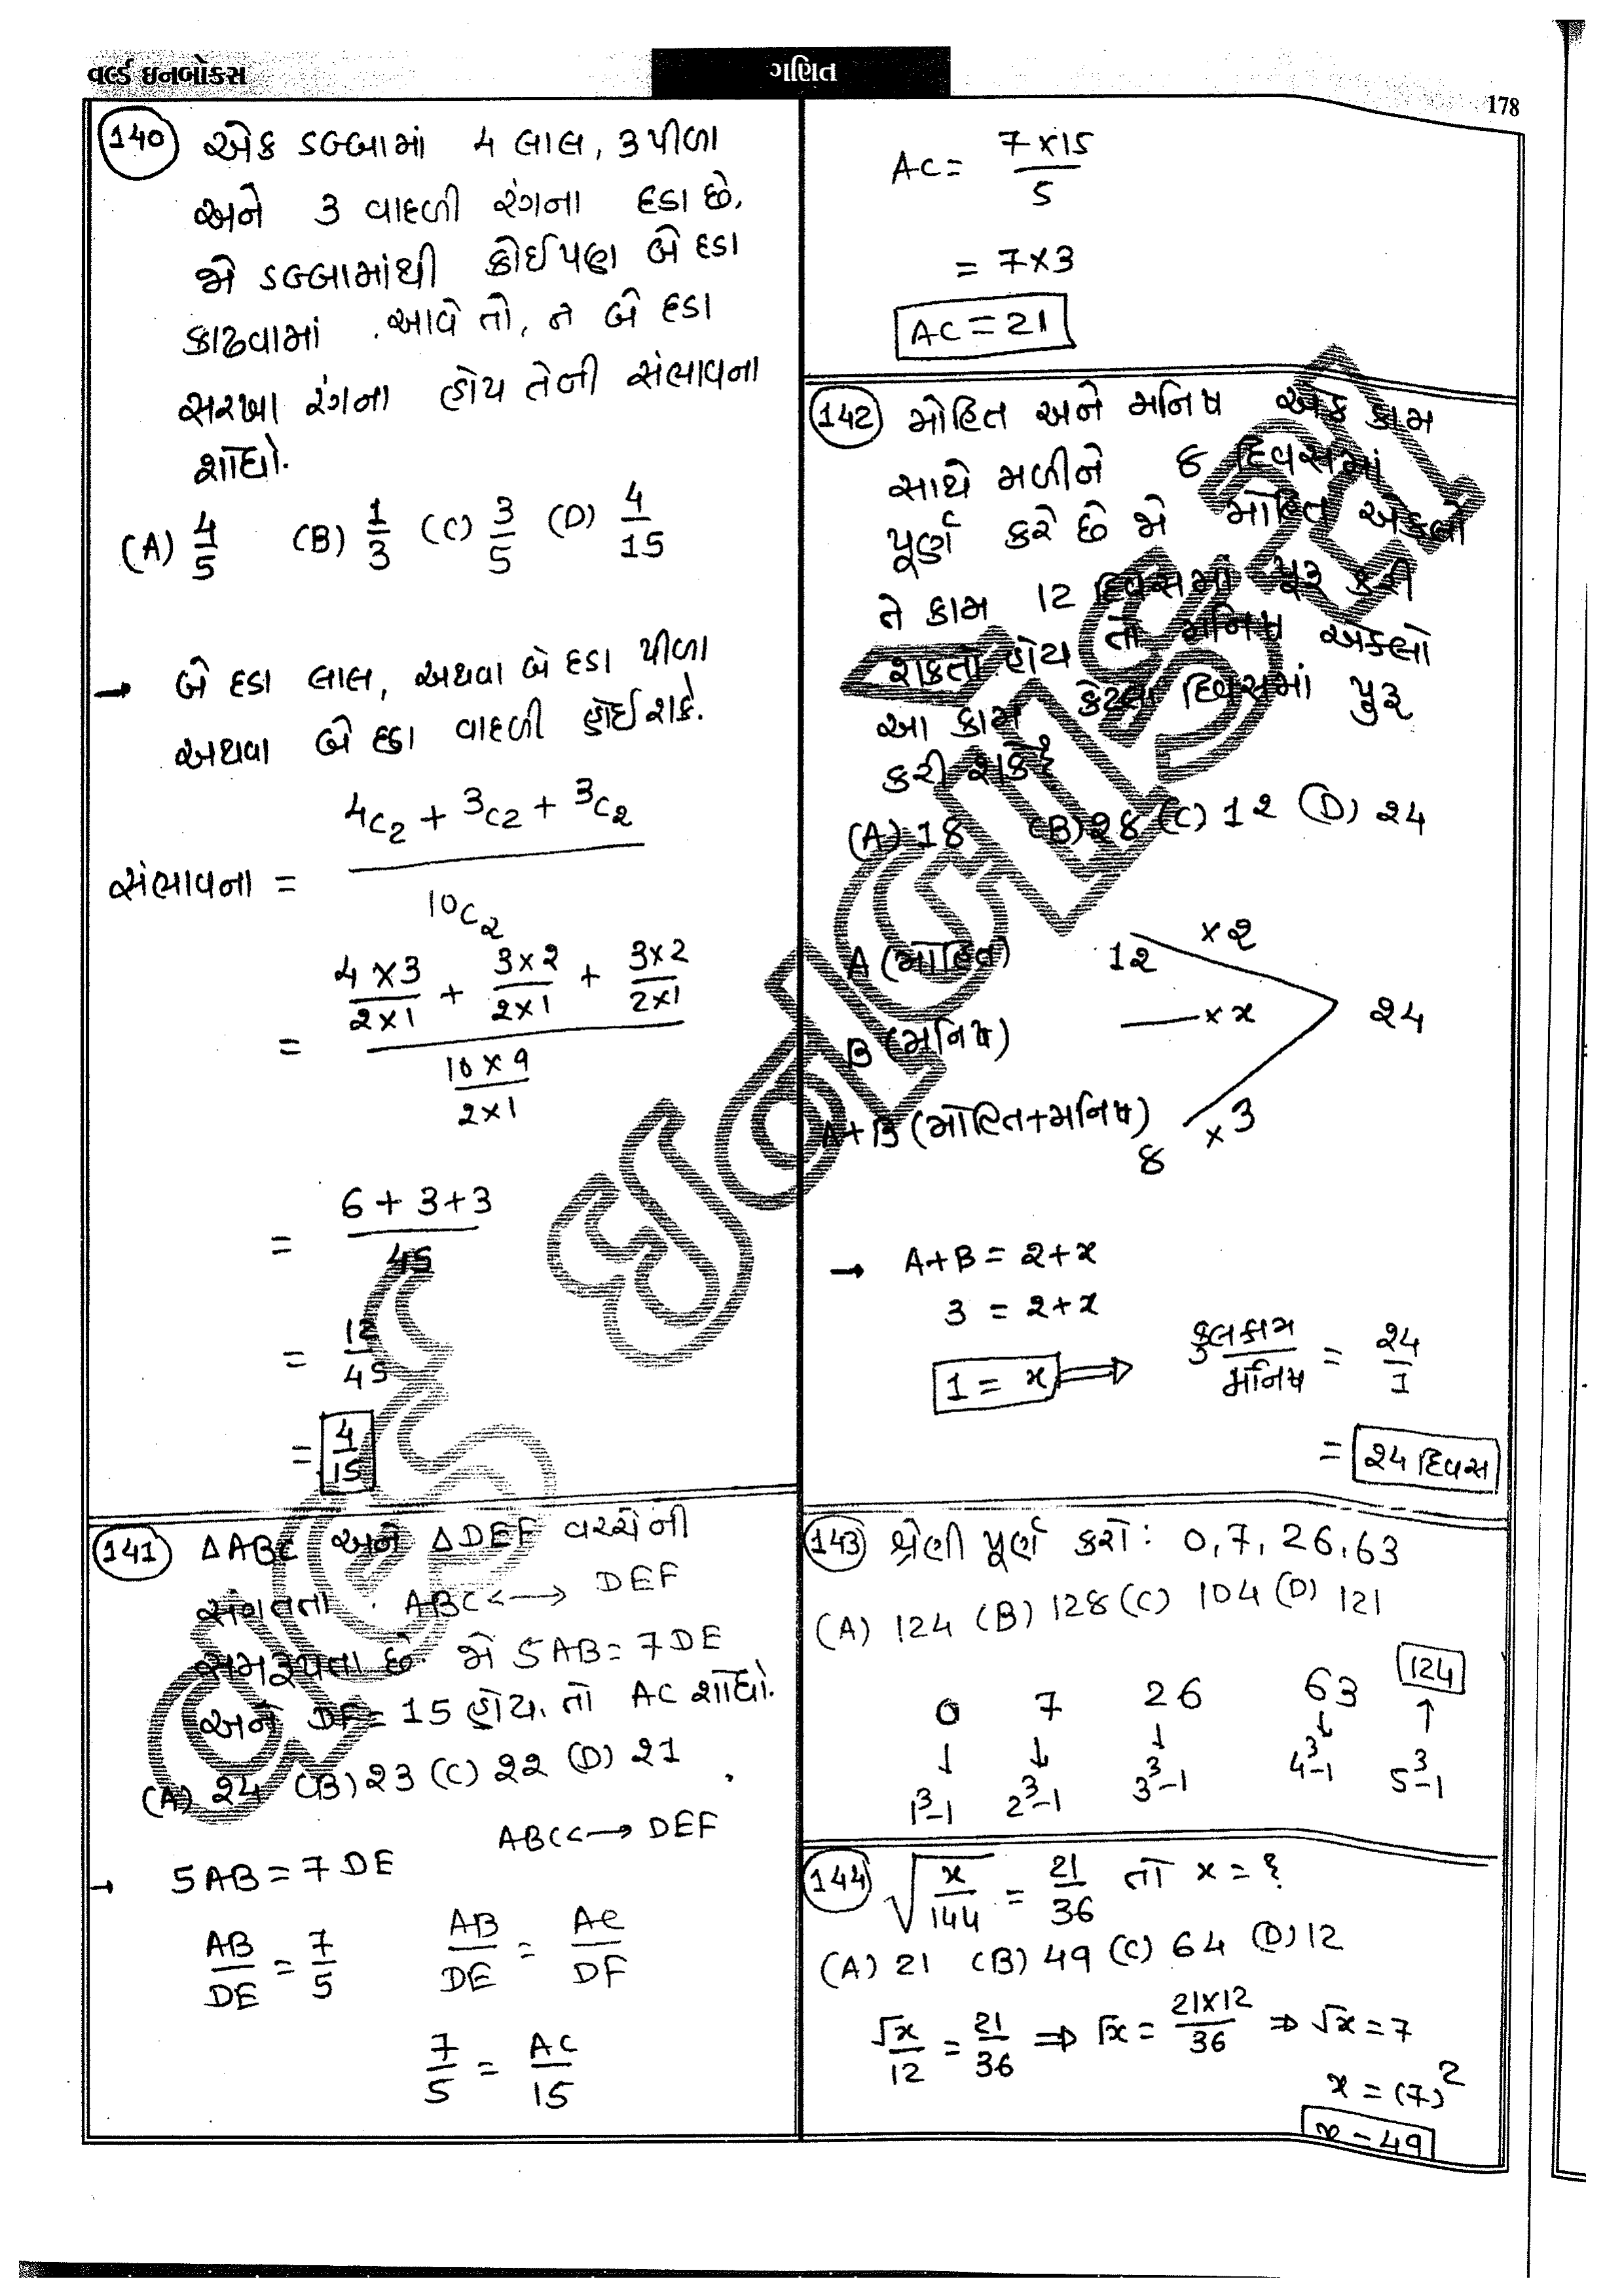 વર્લ્ડ ઇનબોક્સ
ગણિત
178
140 એક ડબ્બામાં 4 લાલ, 3 પીળા
અને 3 વાદળી રંગના દડા છે.
જો ડબ્બામાંથી કોઈપણ બે દડા
કાઢવામાં આવે તો, તે બે દડા
સરખા રંગના હોય તેની સંભાવના
શોધો.
(A) 4/5 (B) 1/3 (C) 3/5 (D) 4/15
→ બે દડા લાલ, અથવા બે દડા પીળા
અથવા બે દડા વાદળી હોઈ શકે.
સંભાવના = (4C2 + 3C2 + 3C2) / 10C2
= (4×3/2×1 + 3×2/2×1 + 3×2/2×1) / (10×9/2×1)
= (6+3+3) / 45
= 12/45
= 4/15
141 ΔABC અને ΔDEF વચ્ચેની
સંગતતા ABC ↔ DEF
સમરૂપતા છે. જો 5AB = 7DE
અને DF = 15 હોય. તો AC શોધો.
(A) 24 (B) 23 (C) 22 (D) 21
ABC ↔ DEF
→ 5AB = 7DE
AB/DE = 7/5 AB/DE = AC/DF
7/5 = AC/15
AC = 7×15/5
= 7×3
AC = 21
142 મોહિત અને મનિષ એક કામ
સાથે મળીને 8 દિવસમાં
પૂર્ણ કરે છે જો મોહિત એકલો
તે કામ 12 દિવસમાં પૂરૂ કરી
શકતો હોય તો મનિષ એકલો
આ કામ કેટલા દિવસમાં પુરૂ
કરી શકે?
(A) 18 (B) 28 (C) 12 (D) 24
A (મોહિત) 12 ×2
B (મનિષ) — ×x 24
A+B (મોહિત+મનિષ) 8 ×3
→ A+B = 2+x
3 = 2+x
1 = x ⇒ કુલકામ/મનિષ = 24/1
= 24 દિવસ
143 શ્રેણી પૂર્ણ કરો: 0, 7, 26, 63
(A) 124 (B) 128 (C) 104 (D) 121
0 7 26 63 124
↓ ↓ ↓ ↓ ↑
1³-1 2³-1 3³-1 4³-1 5³-1
144 √(x/144) = 21/36 તો x = ?
(A) 21 (B) 49 (C) 64 (D) 12
√x/12 = 21/36 ⇒ √x = 21×12/36 ⇒ √x = 7
x = (7)²
x = 49